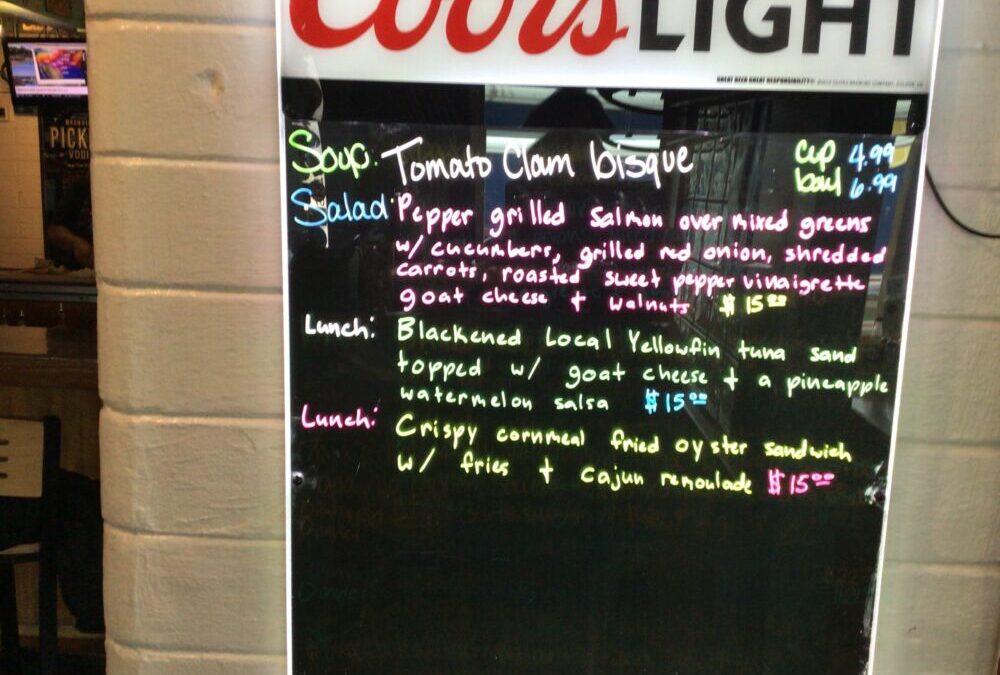 Coors LIGHT
GREAT BEER GREAT RESPONSIBILITY®
PICK
VOD
Soup: Tomato Clam bisque cup 4.99
bowl 6.99
Salad: Pepper grilled Salmon over mixed greens
w/ cucumbers, grilled red onion, shredded
carrots, roasted sweet pepper vinaigrette
goat cheese + walnuts $15.00
Lunch: Blackened Local Yellowfin tuna sand
topped w/ goat cheese + a pineapple
watermelon salsa $15.00
Lunch: Crispy cornmeal fried oyster sandwich
w/ fries + Cajun remoulade $15.00